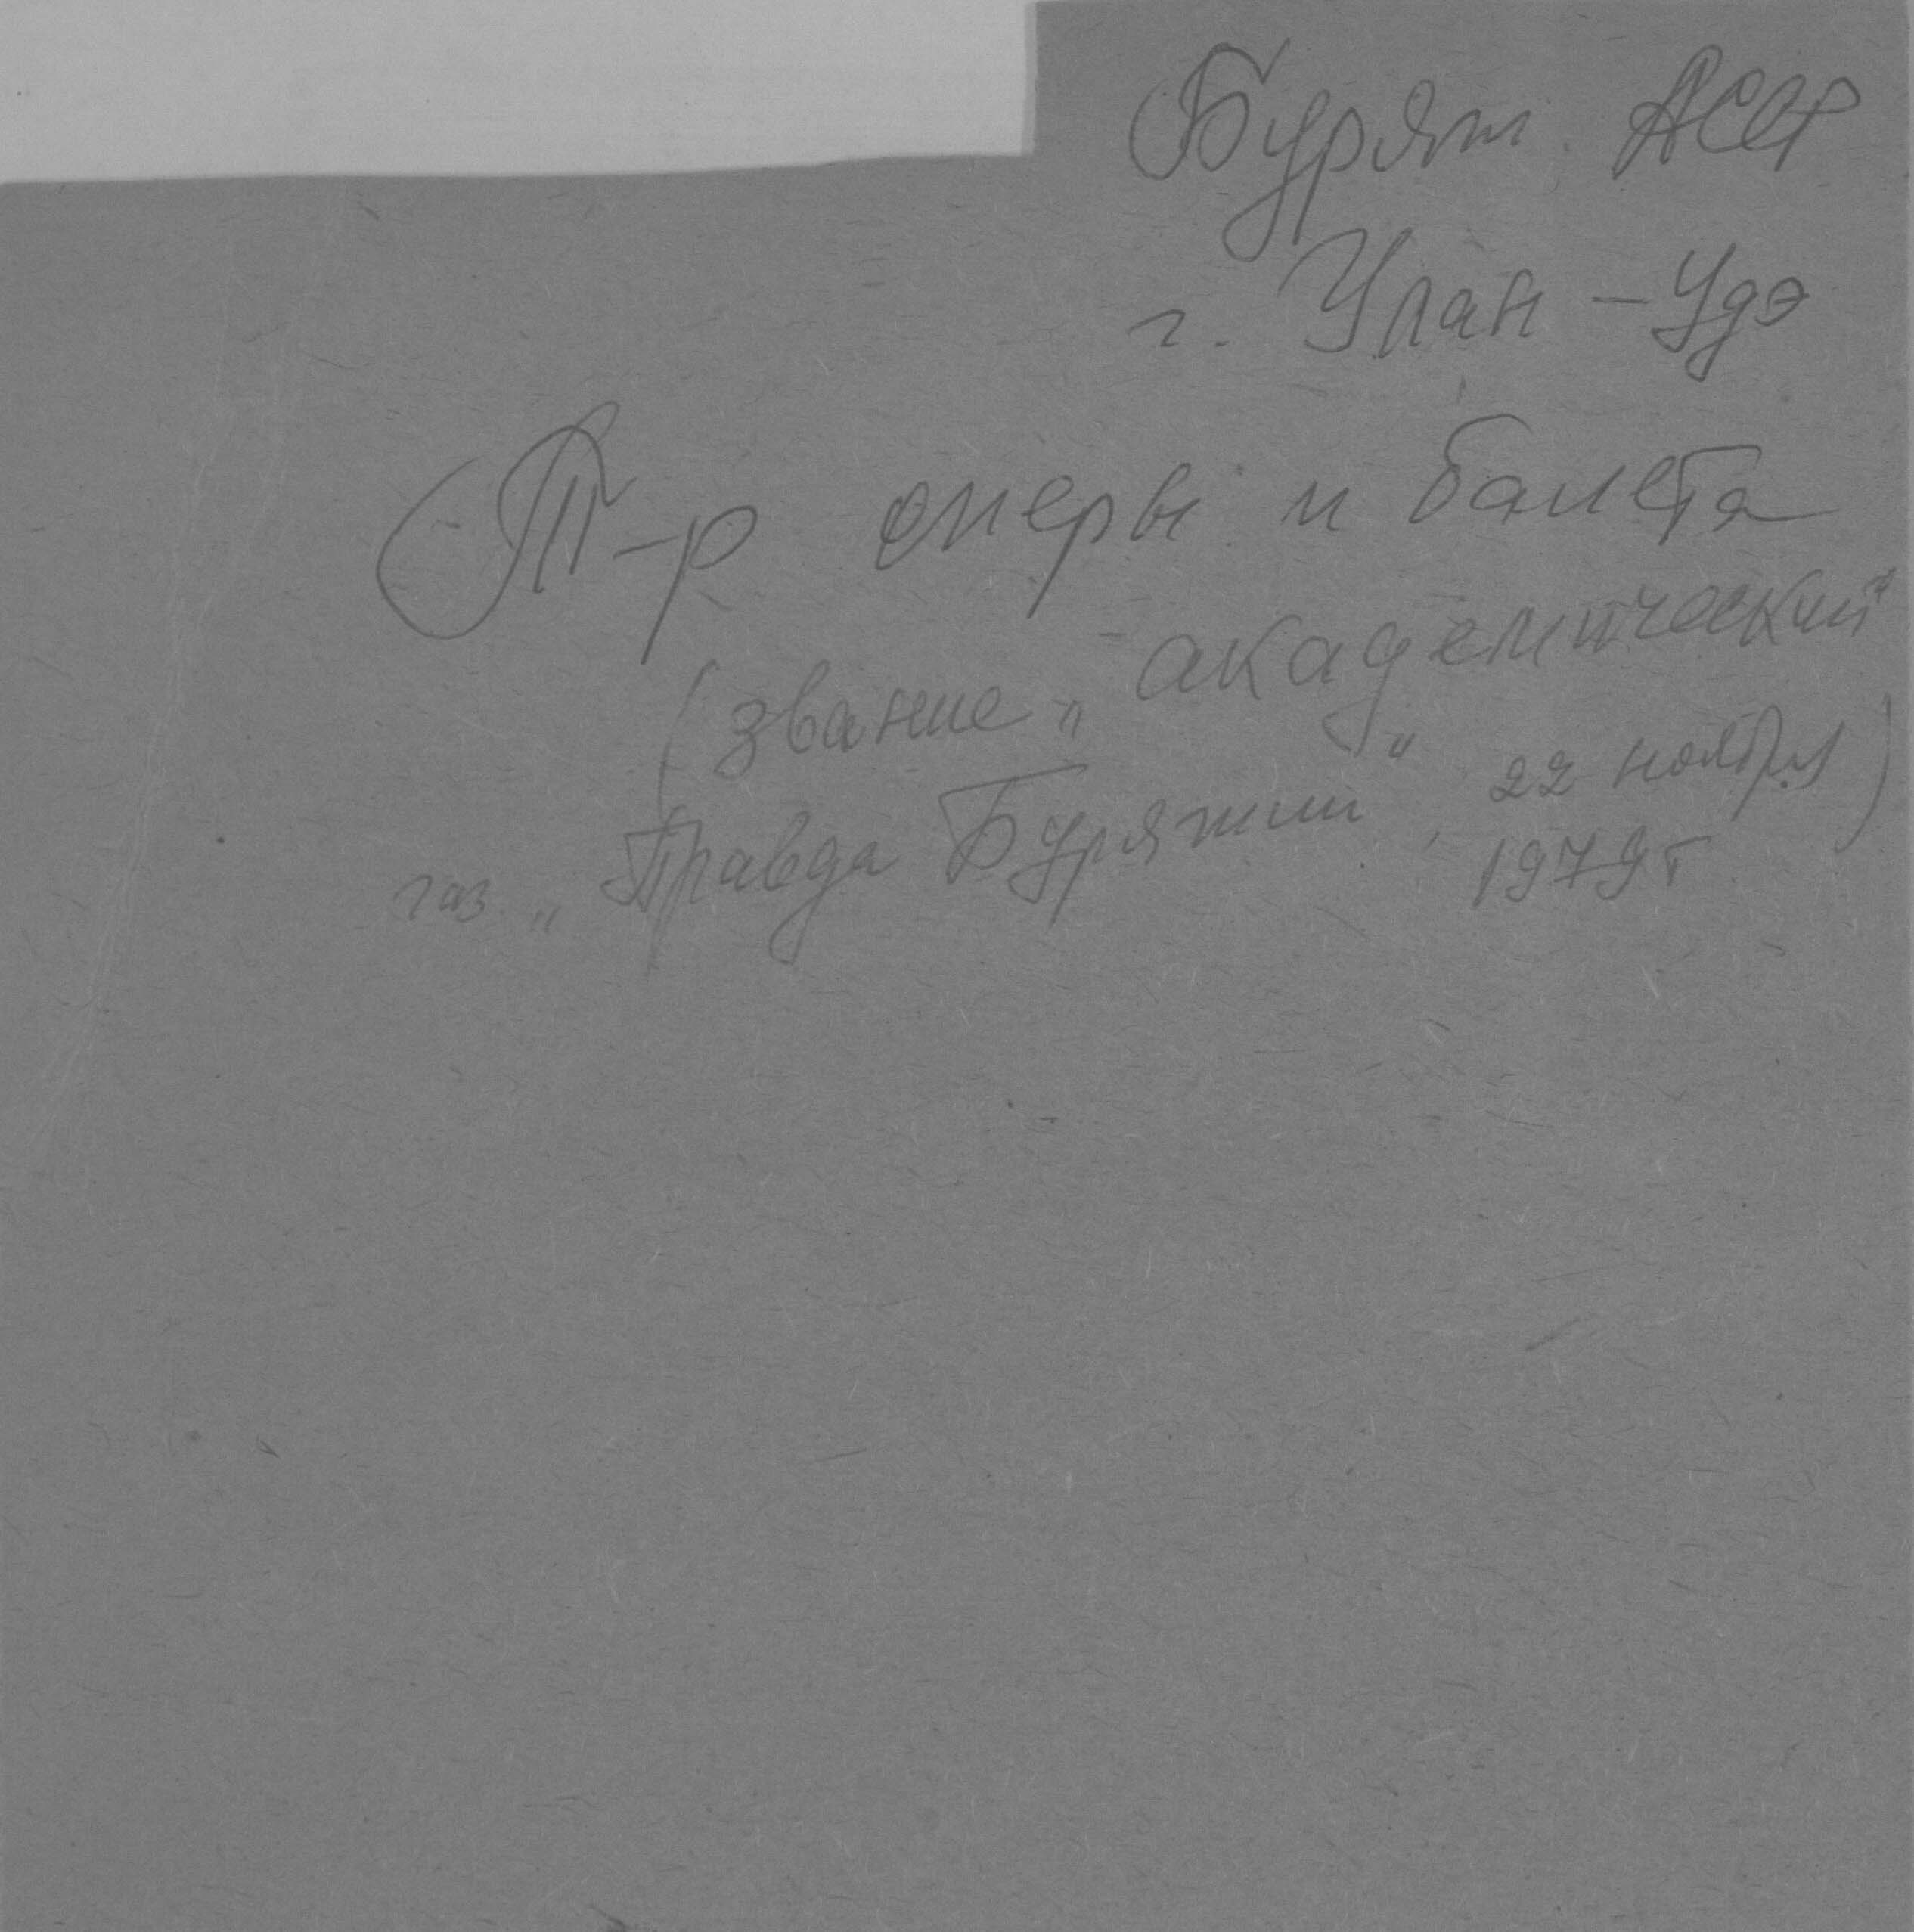 Бурят. АССР
г. Улан-Удэ
Т-р оперы и балета
(звание „академический"
газ. „Правда Бурятии", 22 ноября)
1979 г